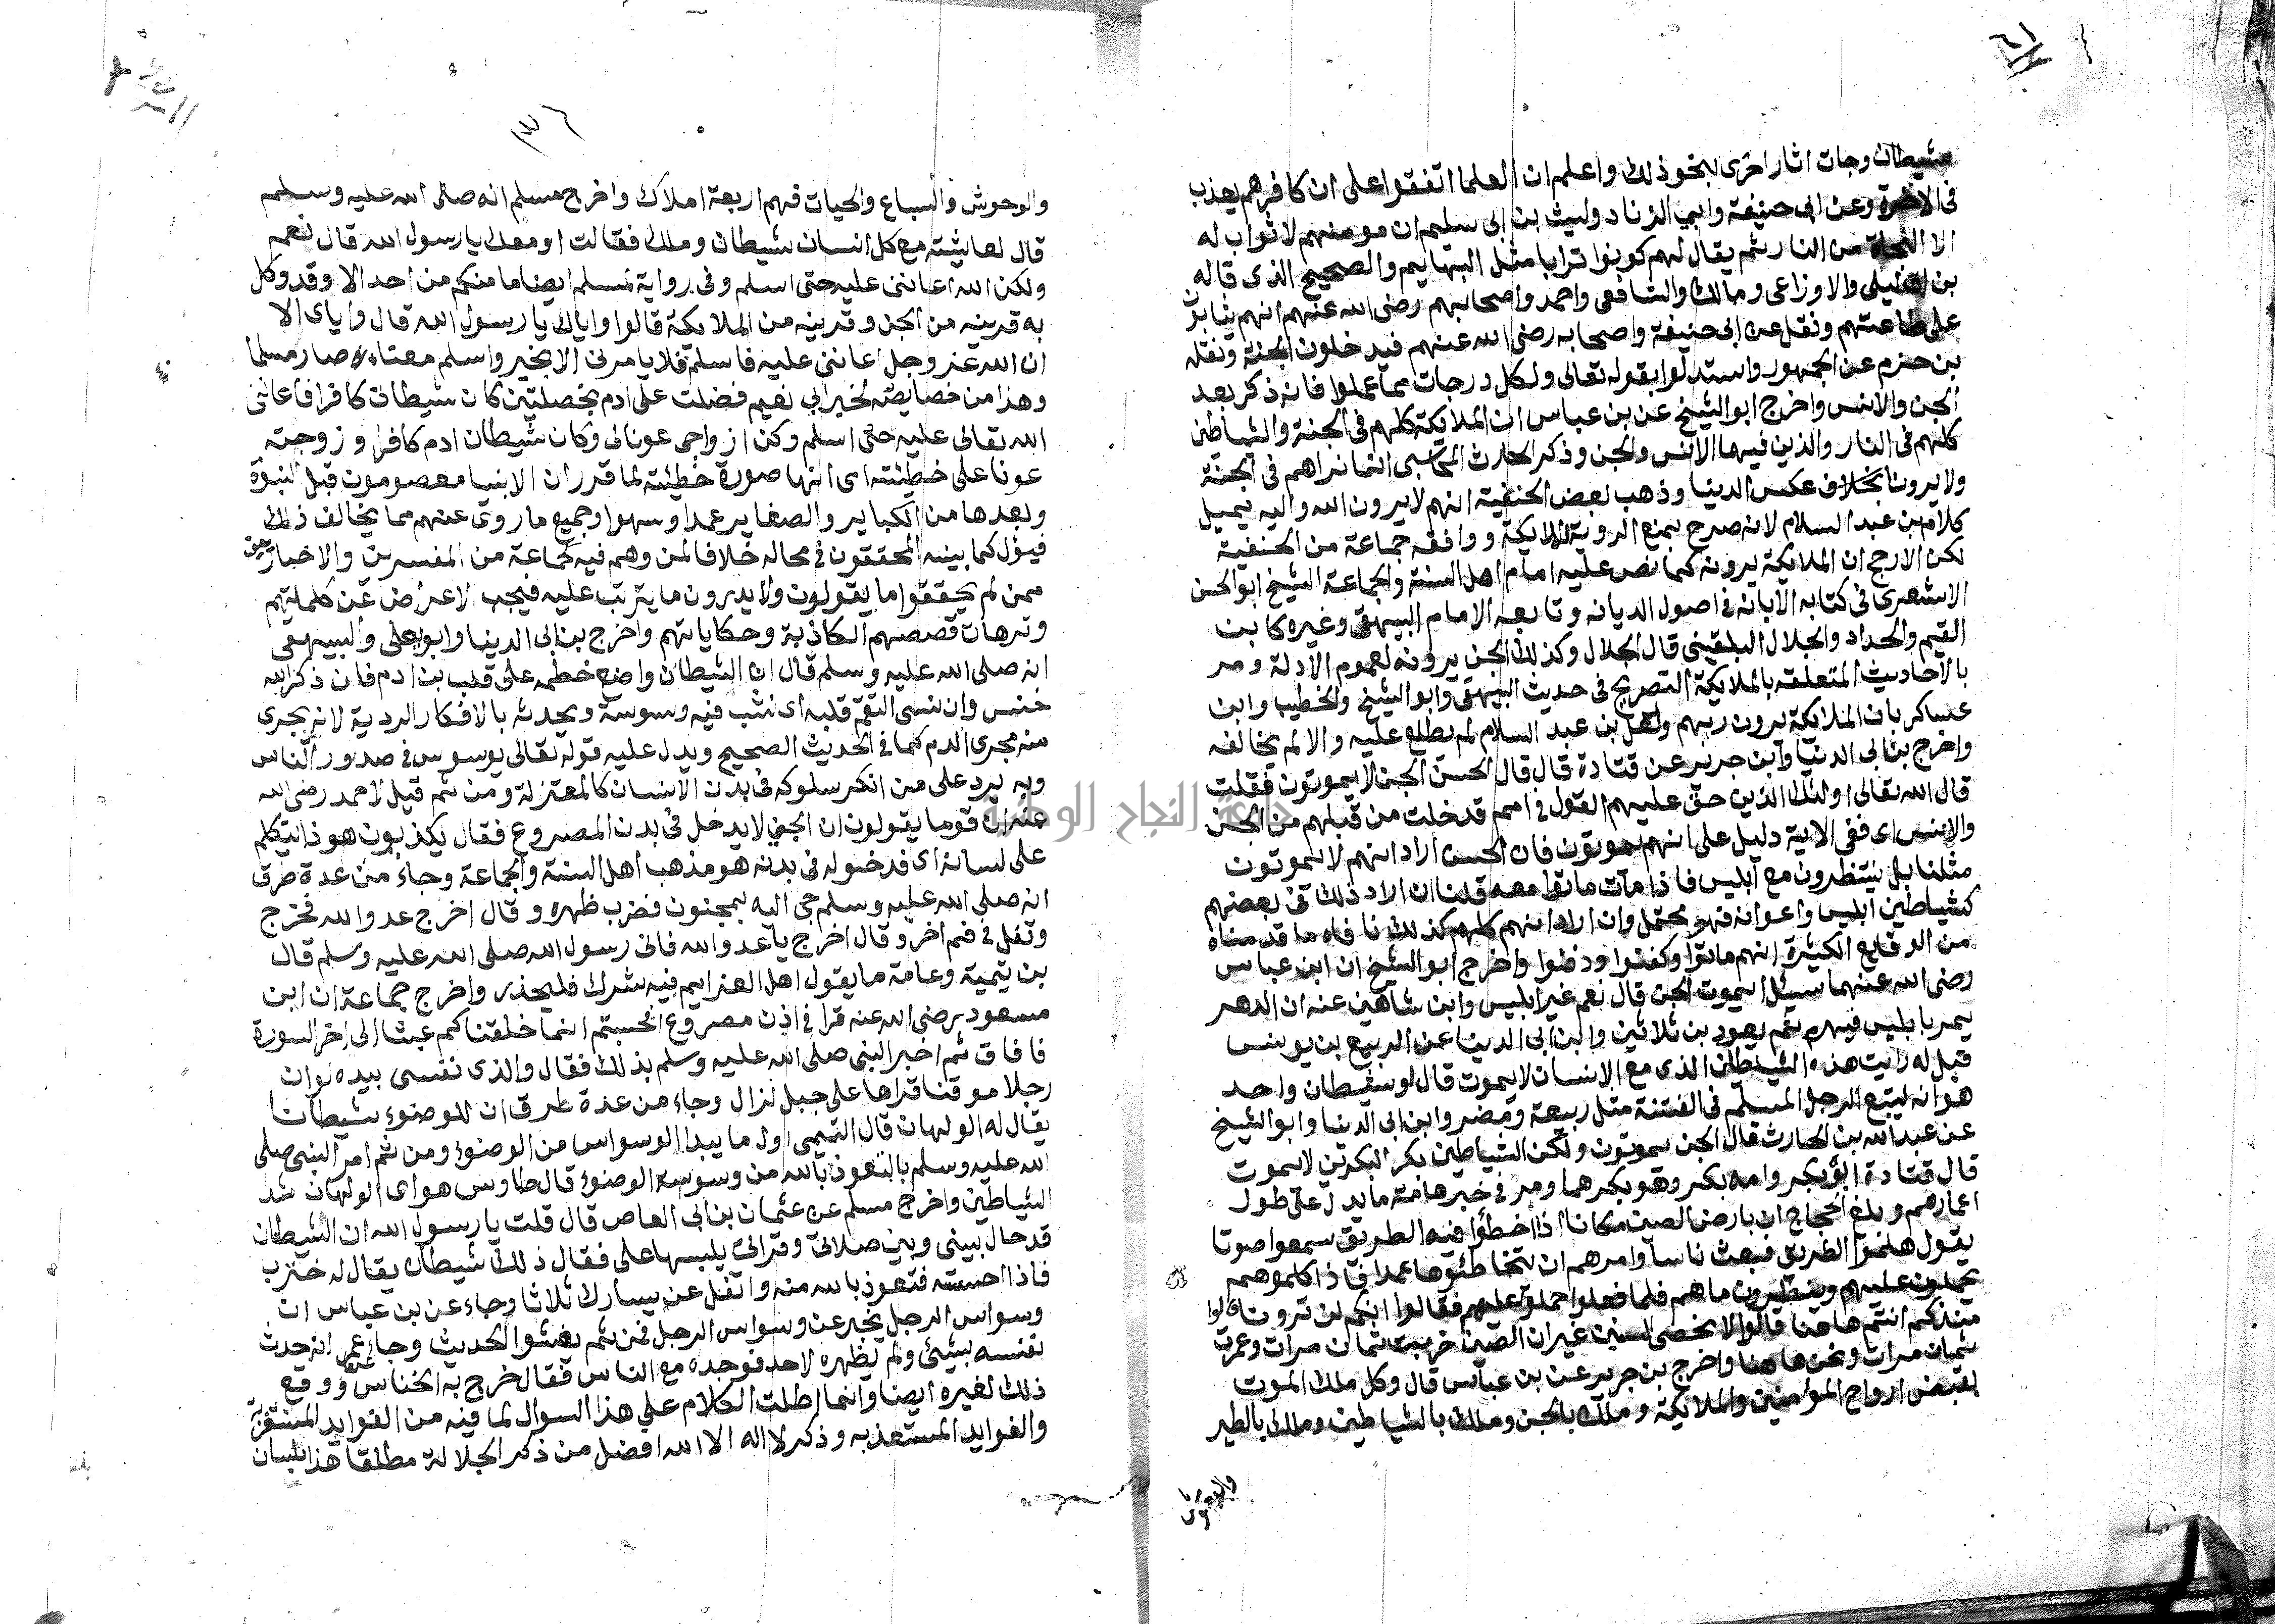 شيطان وجات اثار اخرى بنحو ذلك واعلم ان العلما اتفقوا على ان كافرهم يعذب
فى الاخرة وعن ابى حنيفة وابي الزناد وليث بن ابى سليم ان مومنهم لا ثواب له
الا النجاة من النار ثم يقال لهم كونوا ترابا مثل البهايم والصحيح الذى قاله
بن ابى ليلى والاوزاعى ومالك والشافعى واحمد واصحابهم رضى الله عنهم انهم يثابون
على طاعتهم ونقل عن ابى حنيفة واصحابه رضى الله عنهم فيدخلون الجنة ونقله
بن حزم عن الجمهور واستدلوا بقوله تعالى ولكل درجات مما عملوا فانه ذكر بعد
الجن والانس واخرج ابو الشيخ عن بن عباس ان الملايكة كلهم فى الجنة والشياطين
كلهم فى النار والذين فيهما الانس والجن وذكر الحارث المحاسبى اننا نراهم فى الجنة
ولا يرونا بخلاف عكس الدنيا وذهب بعض الحنفية انهم لا يرون الله واليه يميل
كلام بن عبد السلام لانه صرح بمنع الروية للملايكة ووافقه جماعة من الحنفية
لكن الارجح ان الملايكة يرونه كما نص عليه امام اهل السنة والجماعة الشيخ ابو الحسن
الاشعرى فى كتابه الابانه فى اصول الديانه وتابعه الامام البيهقى وغيره كابن
القيم والحداد والجلال البلقينى قال الجلال وكذلك الجن يرونه لعموم الادلة ومر
بالاحاديث المتعلقه بالملايكة التصريح فى حديث البيهقى وابو الشيخ والخطيب وابن
عساكر بان الملايكة يرون ربهم ولعل بن عبد السلام لم يطلع عليه والا لم يخالفه
واخرج بن ابى الدنيا وابن جرير عن قتادة قال قال الحسن الجن لا يموتون فقلت
قال الله تعالى اولئك الذين حق عليهم القول فى امم قد خلت من قبلهم من الجن
والانس اى ففى الاية دليل على انهم يموتون فان الحسن اراد انهم لا يموتون
مثلنا بل ينتظرون مع ابليس فاذا مات ماتوا معه قلنا ان اراد ذلك فى بعضهم
كشياطين ابليس واعوانه فهو محتمل وان اراد انهم كلهم كذلك نافاه ما قدمناه
من الوقايع الكثيرة انهم ماتوا وكفنوا ودفنوا واخرج ابو الشيخ ان ابن عباس
رضى الله عنهما سيئل ايموت الجن قال نعم غير ابليس وابن شاهين عنه ان الدهر
يمر بابليس فيهرم ثم يعود بن ثلاثين وابن ابى الدنيا عن الربيع بن يونس
قيل له رايت هذه الشيطان الذى مع الانسان لا يموت قال اوشيطان واحد
هو انه ليتبع الرجل المسلم فى الفتنة مثل ربيعة ومضر وابن ابى الدنيا وابو الشيخ
عن عبد الله بن الحارث قال الجن يموتون ولكن الشياطين بكر البكرين لا يموت
قال قتادة ابوه بكر وامه بكر وهو بكرهما ومر فى خبر هامة ما يدل على طول
اعمارهم وبلغ الحجاج ان بارض الصين مكانا اذا اخطؤا فيه الطريق سمعوا صوتا
يقول هلموا الطريق فبعث ناسا وامرهم ان يتخاطئوها عمدا فاذا كلموهم
يحملون عليهم وينظرون ما هم فلما فعلوا حملوا عليهم فقالوا انكم لن ترونا قالوا
منذ كم انتم هاهنا قالوا لا نحصى السنين غير ان الصين خربت ثمان مرات وعمرت
ثمان مرات ونحن هاهنا واخرج بن جرير عن بن عباس قال وكل ملك الموت
بقبض ارواح المؤمنين والملايكة وملك بالجن وملك بالشياطين وملك بالطير
١٣٦
والوحوش والسباع والحيات فهم اربعة املاك واخرج مسلم انه صلى الله عليه وسلم
قال لعايشة مع كل انسان شيطان وملك فقالت اومعك يا رسول الله قال نعم
ولكن الله اعاننى عليه حتى اسلم وفى رواية لمسلم ايضا ما منكم من احد الا وقد وكل
به قرينه من الجن وقرينه من الملايكة قالوا واياك يا رسول الله قال واياى الا
ان الله عز وجل اعاننى عليه فاسلم فلا يامرنى الا بخير واسلم معناه صار مسلما
وهذا من خصايصه لخبر ابي نعيم فضلت على ادم بخصلتين كان شيطانى كافرا فاعاننى
الله تعالى عليه حتى اسلم وكن ازواجى عونا لى وكان شيطان ادم كافرا وزوجته
عونا على خطيئته اى انها صورة خطيئته لما قرر ان الانبيا معصومون قبل النبوة
وبعدها من الكباير والصغاير عمدا وسهوا وجميع ما روى عنهم مما يخالف ذلك
فيؤل كما بينه المحققون فى محاله خلافا لمن وهم فيه كجماعة من المفسرين والاخباريين
ممن لم يحققوا ما يقولون ولا يدرون ما يترتب عليه فيجب الاعراض عن كلماتهم
وترهات قصصهم الكاذبة وحكاياتهم واخرج بن ابى الدنيا وابو يعلى والبيهقى
انه صلى الله عليه وسلم قال ان الشيطان واضع خطمه على قلب بن ادم فان ذكر الله
خنس وان نسى التقم قلبه اى نشب فيه وسوسة ويحدثه بالافكار الردية لانه يجرى
منه مجرى الدم كما فى الحديث الصحيح ويدل عليه قوله تعالى يوسوس فى صدور الناس
وبه يرد على من انكر سلوكه فى بدن الانسان كالمعتزلة ومن ثم قيل لاحمد رضى الله
عنه ان قوما يقولون ان الجنى لا يدخل فى بدن المصروع فقال يكذبون هو ذا يتكلم
على لسانه اى فدخوله فى بدنه هو مذهب اهل السنة والجماعة وجاء من عدة طرق
انه صلى الله عليه وسلم جى اليه بمجنون فضرب ظهره وقال اخرج عدو الله فخرج
وتفل فى فم اخر وقال اخرج يا عدو الله فانى رسول الله صلى الله عليه وسلم قال
بن تيمية وعامة ما يقول اهل العزايم فيه شرك فليحذر واخرج جماعة ان ابن
مسعود رضى الله عنه قرا فى اذن مصروع افحسبتم انما خلقناكم عبثا الى اخر السورة
فافاق ثم اخبر النبى صلى الله عليه وسلم بذلك فقال والذى نفسى بيده لو ان
رجلا موقنا قراها على جبل لزال وجاء من عدة طرق ان للوضوء شيطانا
يقال له الولهان قال التيمى اول ما يبدا الوسواس من الوضوء ومن ثم امر النبى صلى
الله عليه وسلم بالتعوذ بالله من وسوسة الوضوء قال طاوس هو اى الولهان اشد
الشياطين واخرج مسلم عن عثمان بن ابى العاص قال قلت يا رسول الله ان الشيطان
قد حال بينى وبين صلاتى وقراتى يلبسها على فقال ذلك شيطان يقال له خنزب
فاذا احسسته فتعوذ بالله منه واتفل عن يسارك ثلاثا وجاء عن بن عباس ان
وسواس الرجل يخبر عن وسواس الرجل فمن ثم يفشوا الحديث وجاء عن عمر انه حدث
نفسه بشئ ولم يظهره لاحد فوجده مع الناس فقال خرج به الخناس ووقع
ذلك لغيره ايضا وانما اطلت الكلام على هذا السوال لما فيه من الفوايد
والفوايد المستعذبه وذكر لا اله الا الله افضل من ذكر الجلالة مطلقا هذا بلسان
جامعة النجاح الوطنية